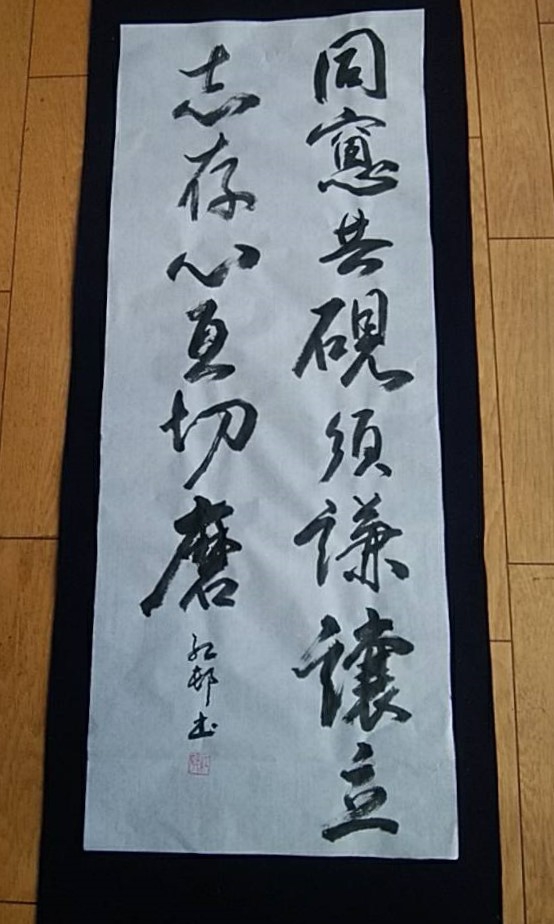 同窓共硯須謙譲立
志存心互切磨
紅邨書